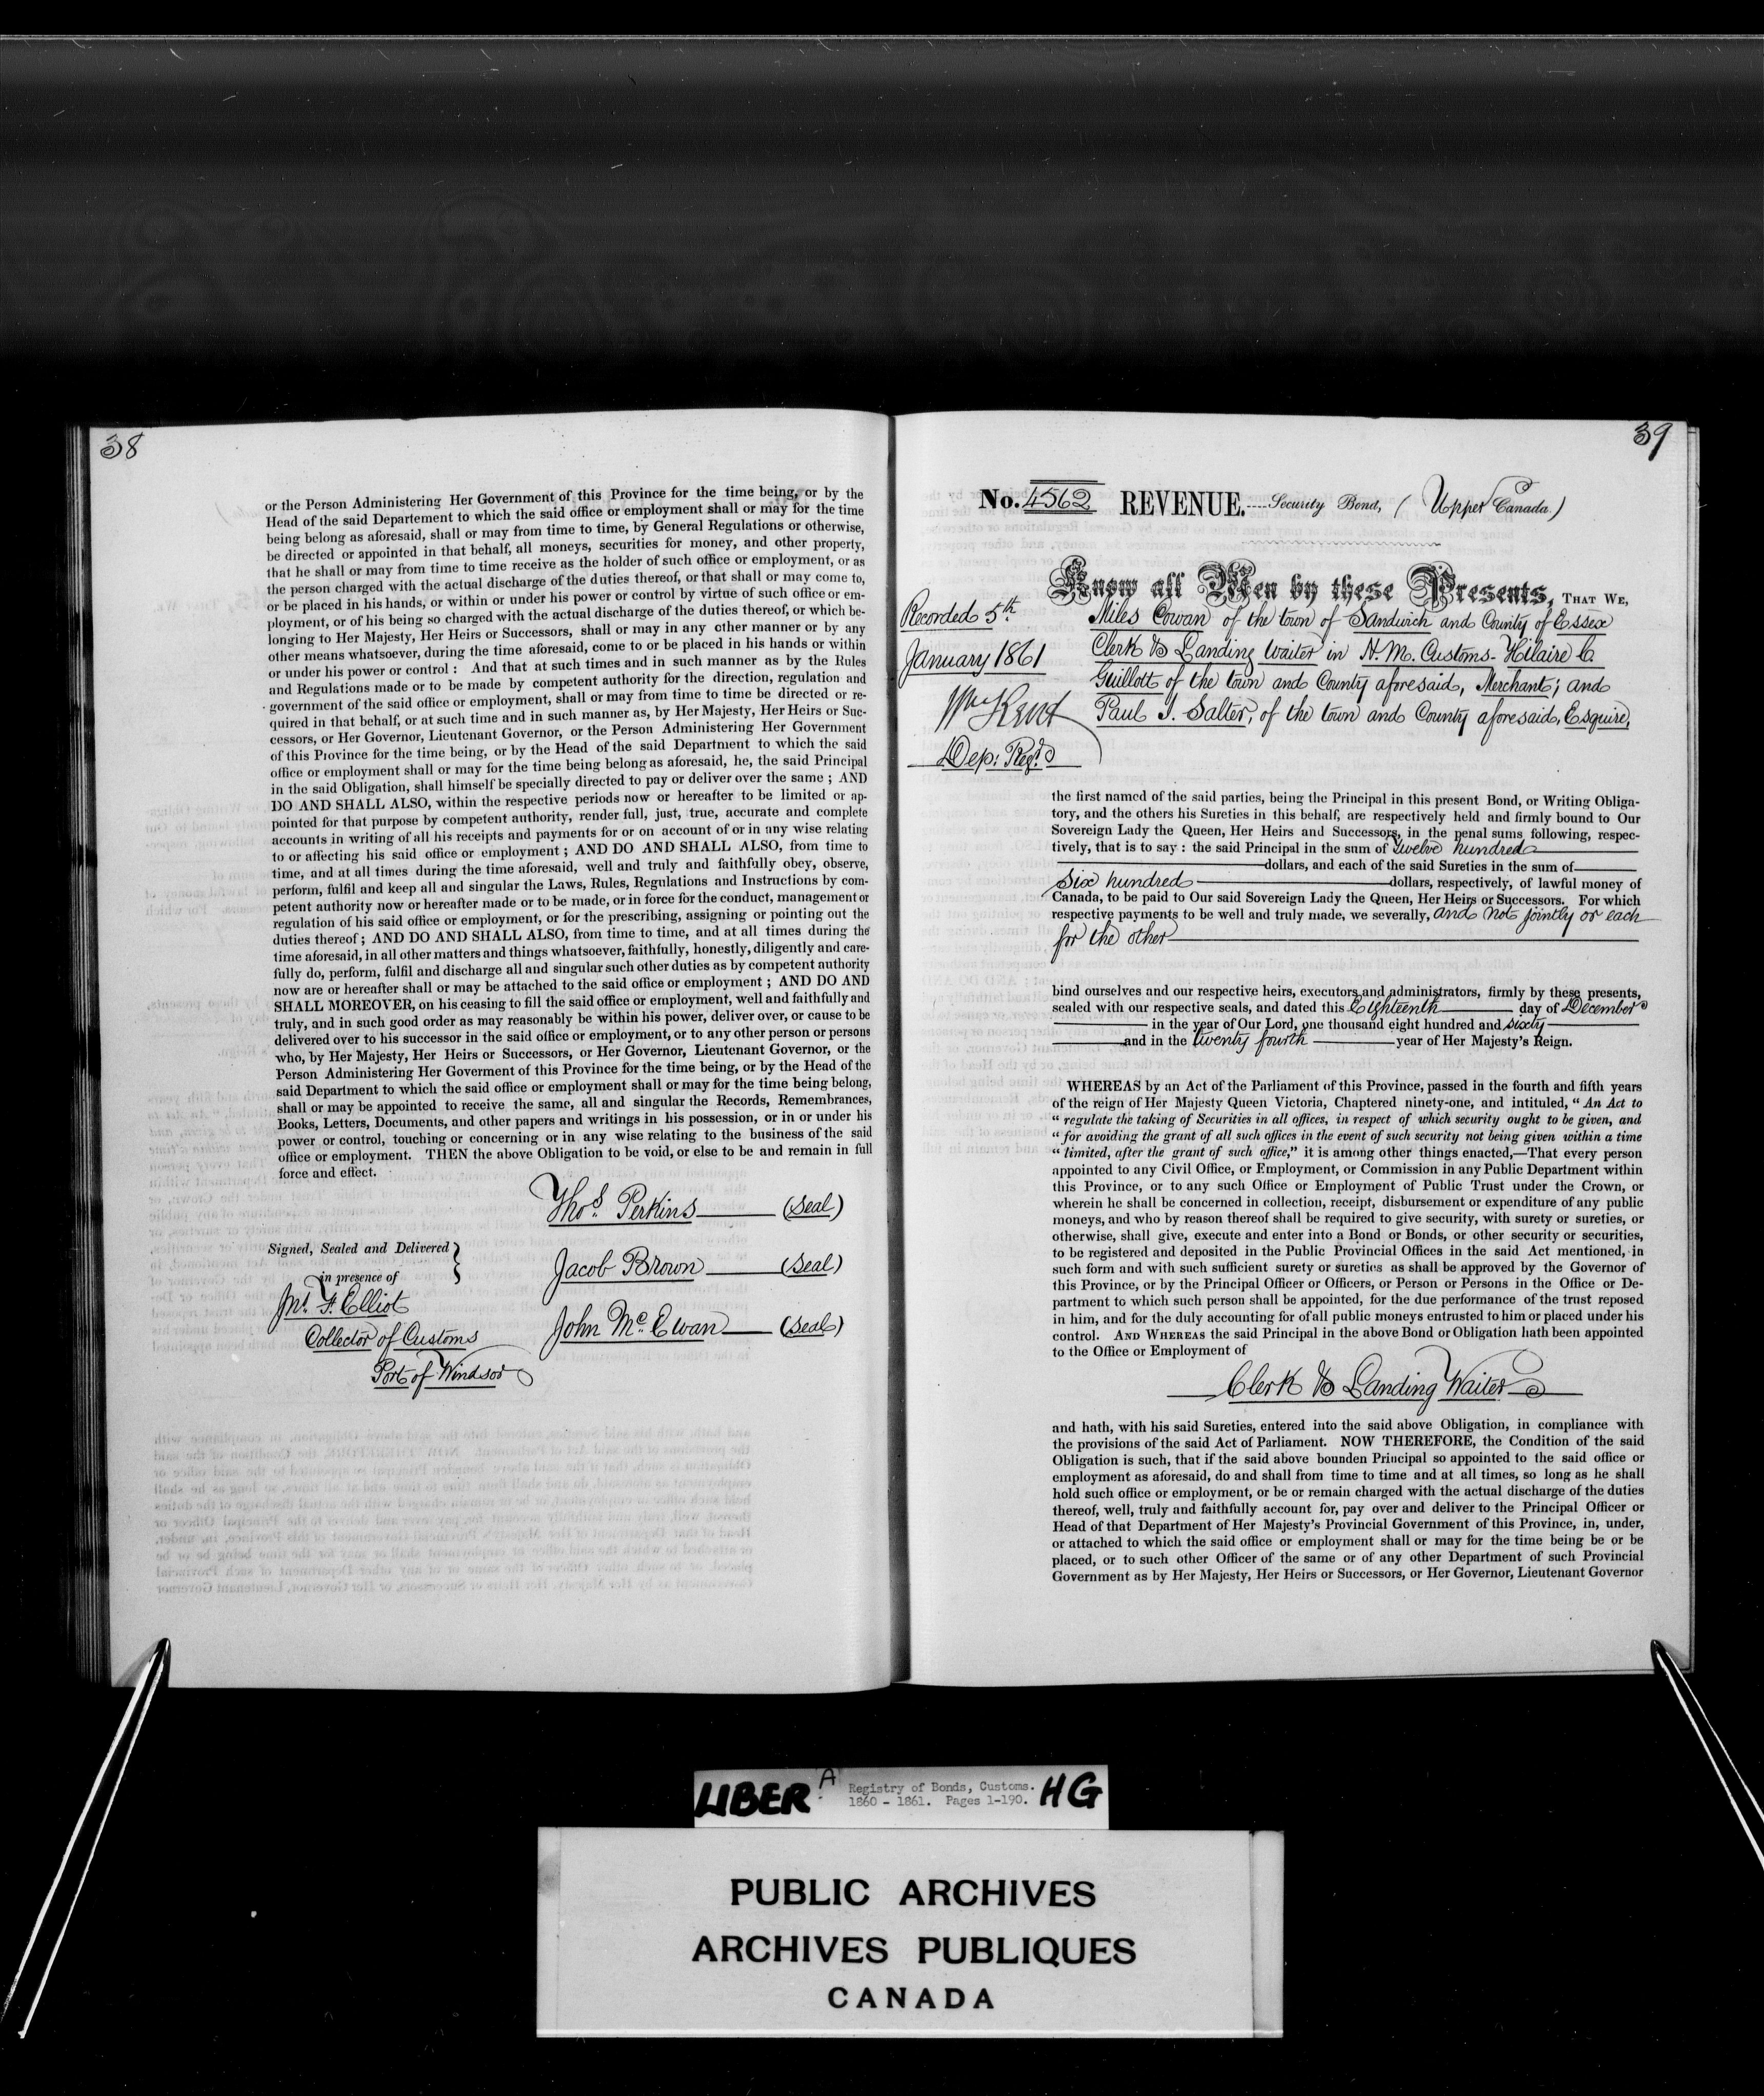 38
or the Person Administering Her Government of this Province for the time being, or by the
Head of the said Departement to which the said office or employment shall or may for the time
being belong as aforesaid, shall or may from time to time, by General Regulations or otherwise,
be directed or appointed in that behalf, all moneys, securities for money, and other property,
that he shall or may from time to time receive as the holder of such office or employment, or as
the person charged with the actual discharge of the duties thereof, or that shall or may come to,
or be placed in his hands, or within or under his power or control by virtue of such office or em-
ployment, or of his being so charged with the actual discharge of the duties thereof, or which be-
longing to Her Majesty, Her Heirs or Successors, shall or may in any other manner or by any
other means whatsoever, during the time aforesaid, come to or be placed in his hands or within
or under his power or control : And that at such times and in such manner as by the Rules
and Regulations made or to be made by competent authority for the direction, regulation and
government of the said office or employment, shall or may from time to time be directed or re-
quired in that behalf, or at such time and in such manner as, by Her Majesty, Her Heirs or Suc-
cessors, or Her Governor, Lieutenant Governor, or the Person Administering Her Government
of this Province for the time being, or by the Head of the said Department to which the said
office or employment shall or may for the time being belong as aforesaid, he, the said Principal
in the said Obligation, shall himself be specially directed to pay or deliver over the same ; AND
DO AND SHALL ALSO, within the respective periods now or hereafter to be limited or ap-
pointed for that purpose by competent authority, render full, just, true, accurate and complete
accounts in writing of all his receipts and payments for or on account of or in any wise relating
to or affecting his said office or employment ; AND DO AND SHALL ALSO, from time to
time, and at all times during the time aforesaid, well and truly and faithfully obey, observe,
perform, fulfil and keep all and singular the Laws, Rules, Regulations and Instructions by com-
petent authority now or hereafter made or to be made, or in force for the conduct, management or
regulation of his said office or employment, or for the prescribing, assigning or pointing out the
duties thereof ; AND DO AND SHALL ALSO, from time to time, and at all times during the
time aforesaid, in all other matters and things whatsoever, faithfully, honestly, diligently and care-
fully do, perform, fulfil and discharge all and singular such other duties as by competent authority
now are or hereafter shall or may be attached to the said office or employment ; AND DO AND
SHALL MOREOVER, on his ceasing to fill the said office or employment, well and faithfully and
truly, and in such good order as may reasonably be within his power, deliver over, or cause to be
delivered over to his successor in the said office or employment, or to any other person or persons
who, by Her Majesty, Her Heirs or Successors, or Her Governor, Lieutenant Governor, or the
Person Administering Her Goverment of this Province for the time being, or by the Head of the
said Department to which the said office or employment shall or may for the time being belong,
shall or may be appointed to receive the same, all and singular the Records, Remembrances,
Books, Letters, Documents, and other papers and writings in his possession, or in or under his
power or control, touching or concerning or in any wise relating to the business of the said
office or employment. THEN the above Obligation to be void, or else to be and remain in full
force and effect.
Thos. Perkins (Seal)
Signed, Sealed and Delivered
in presence of
Jacob Brown (Seal)
Jn. F. Elliot
John McEwan (Seal)
Collector of Customs
Port of Windsor
39
No. 4562 REVENUE.----Security Bond, (Upper Canada.)
Know all Men by these Presents, THAT WE,
Recorded 5th
January 1861
Wm Kent
Dep: Regr
Miles Cowan of the town of Sandwich and County of Essex
Clerk & Landing Waiter in H. M. Customs- Hilaire C.
Guillott of the town and County aforesaid, Merchant; and
Paul J. Salter, of the town and County aforesaid, Esquire,
the first named of the said parties, being the Principal in this present Bond, or Writing Obliga-
tory, and the others his Sureties in this behalf, are respectively held and firmly bound to Our
Sovereign Lady the Queen, Her Heirs and Successors, in the penal sums following, respec-
tively, that is to say : the said Principal in the sum of Twelve hundred
dollars, and each of the said Sureties in the sum of
Six hundred dollars, respectively, of lawful money of
Canada, to be paid to Our said Sovereign Lady the Queen, Her Heirs or Successors. For which
respective payments to be well and truly made, we severally, and not jointly or each
for the other
bind ourselves and our respective heirs, executors and administrators, firmly by these presents,
sealed with our respective seals, and dated this Eighteenth day of December
in the year of Our Lord, one thousand eight hundred and sixty
and in the twenty fourth year of Her Majesty's Reign.
WHEREAS by an Act of the Parliament of this Province, passed in the fourth and fifth years
of the reign of Her Majesty Queen Victoria, Chaptered ninety-one, and intituled, " An Act to
" regulate the taking of Securities in all offices, in respect of which security ought to be given, and
" for avoiding the grant of all such offices in the event of such security not being given within a time
" limited, after the grant of such office," it is among other things enacted,—That every person
appointed to any Civil Office, or Employment, or Commission in any Public Department within
this Province, or to any such Office or Employment of Public Trust under the Crown, or
wherein he shall be concerned in collection, receipt, disbursement or expenditure of any public
moneys, and who by reason thereof shall be required to give security, with surety or sureties, or
otherwise, shall give, execute and enter into a Bond or Bonds, or other security or securities,
to be registered and deposited in the Public Provincial Offices in the said Act mentioned, in
such form and with such sufficient surety or sureties as shall be approved by the Governor of
this Province, or by the Principal Officer or Officers, or Person or Persons in the Office or De-
partment to which such person shall be appointed, for the due performance of the trust reposed
in him, and for the duly accounting for of all public moneys entrusted to him or placed under his
control. AND WHEREAS the said Principal in the above Bond or Obligation hath been appointed
to the Office or Employment of
Clerk & Landing Waiter
and hath, with his said Sureties, entered into the said above Obligation, in compliance with
the provisions of the said Act of Parliament. NOW THEREFORE, the Condition of the said
Obligation is such, that if the said above bounden Principal so appointed to the said office or
employment as aforesaid, do and shall from time to time and at all times, so long as he shall
hold such office or employment, or be or remain charged with the actual discharge of the duties
thereof, well, truly and faithfully account for, pay over and deliver to the Principal Officer or
Head of that Department of Her Majesty's Provincial Government of this Province, in, under,
or attached to which the said office or employment shall or may for the time being be or be
placed, or to such other Officer of the same or of any other Department of such Provincial
Government as by Her Majesty, Her Heirs or Successors, or Her Governor, Lieutenant Governor
LIBER A Registry of Bonds, Customs. HG
1860 - 1861. Pages 1-190.
PUBLIC ARCHIVES
ARCHIVES PUBLIQUES
CANADA